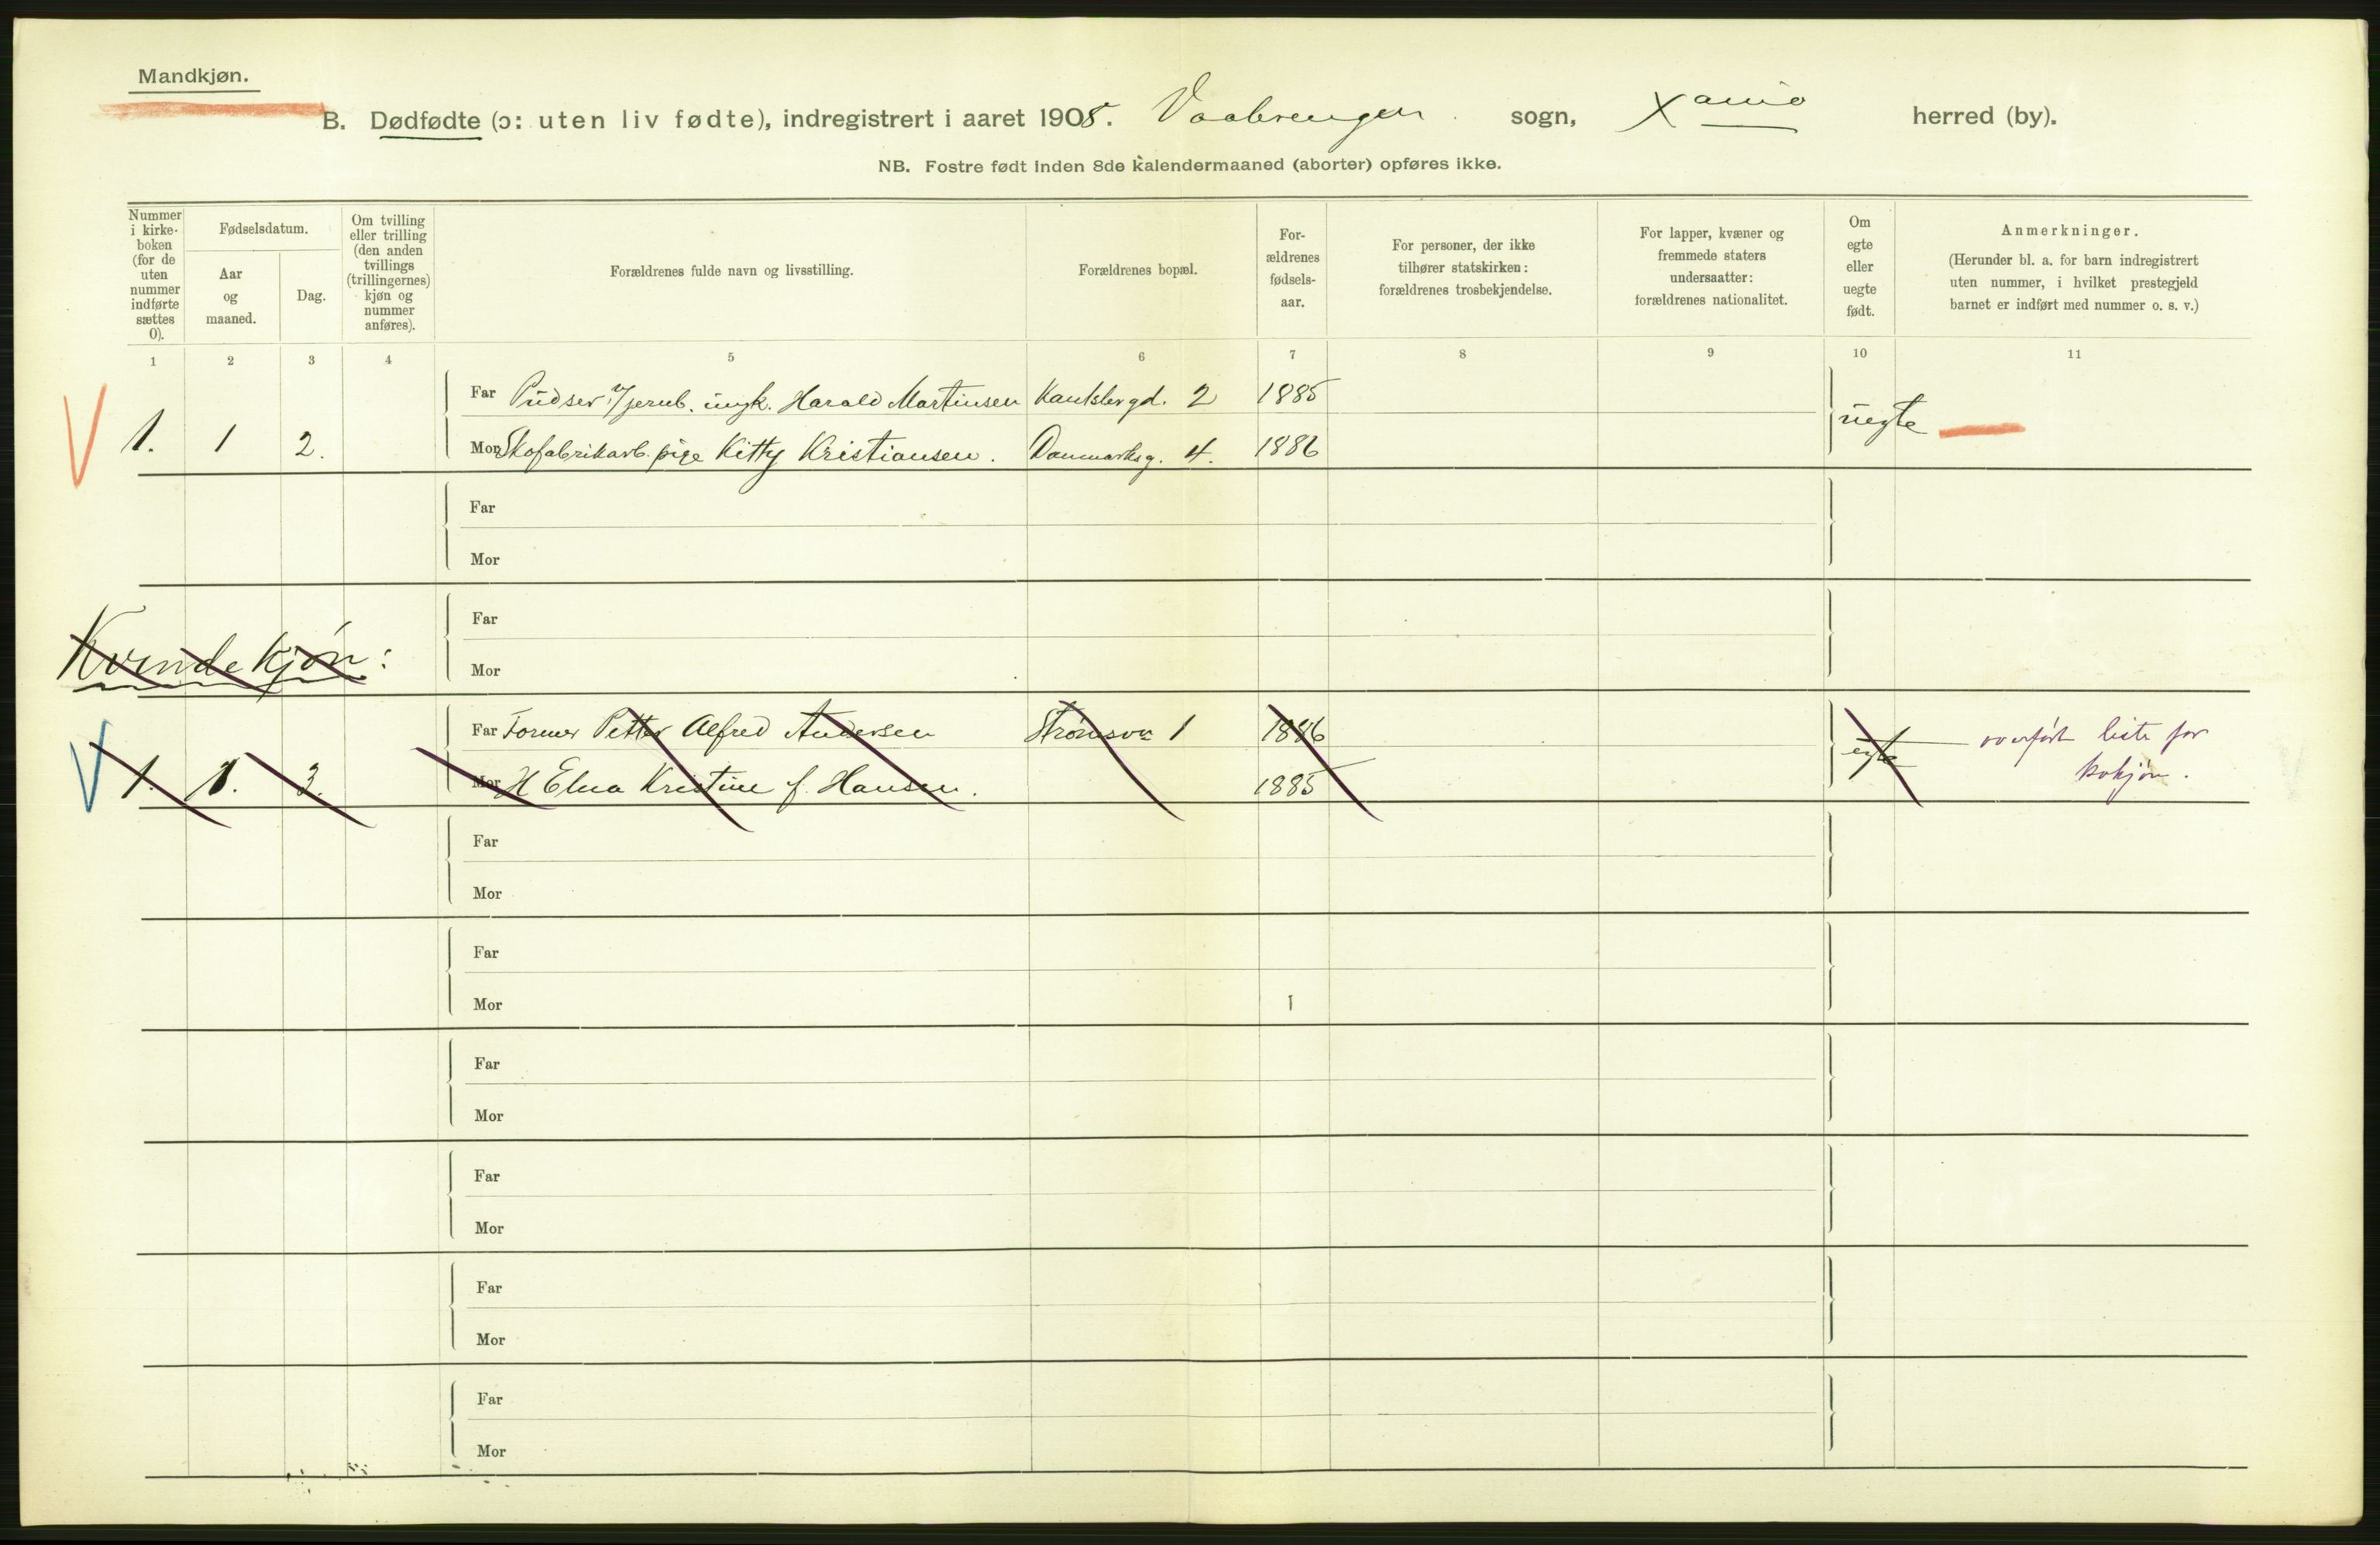 Mandkjøn.
B. Dødfødte (ɔ: uten liv fødte), indregistrert i aaret 1908. Vaalerengen sogn, Xania herred (by).
NB. Fostre født inden 8de kalendermaaned (aborter) opføres ikke.
Nummer i kirke-boken (for de uten nummer indførte sættes 0).
Fødselsdatum.
Aar og maaned.
Dag.
Om tvilling eller trilling (den anden tvillings (trillingernes) kjøn og nummer anføres).
Forældrenes fulde navn og livsstilling.
Forældrenes bopæl.
For-ældrenes fødsels-aar.
For personer, der ikke tilhører statskirken: forældrenes trosbekjendelse.
For lapper, kvæner og fremmede staters undersaatter: forældrenes nationalitet.
Om egte eller uegte født.
Anmerkninger.
(Herunder bl. a. for barn indregistrert uten nummer, i hvilket prestegjeld barnet er indført med nummer o. s. v.)
1 2 3 4 5 6 7 8 9 10 11
Far Pudser v/jernb. ungk. Harald Martinsen 2 1885
1. 1 2. uegte
Mor Skofabrikarb. pige Kitty Kristiansen. Danmarksg. 4. 1886
Far
Mor
Far
Kvindekjøn:
Mor
Far Former Petter Alfred Andersen Strømsvn 1 1886
1. 1. 3. egte overført liste for
Mor H Elna Kristine f. Hansen. 1885 kvkjøn.
Far
Mor
Far
Mor 1
Far
Mor
Far
Mor
Far
Mor
Far
Mor